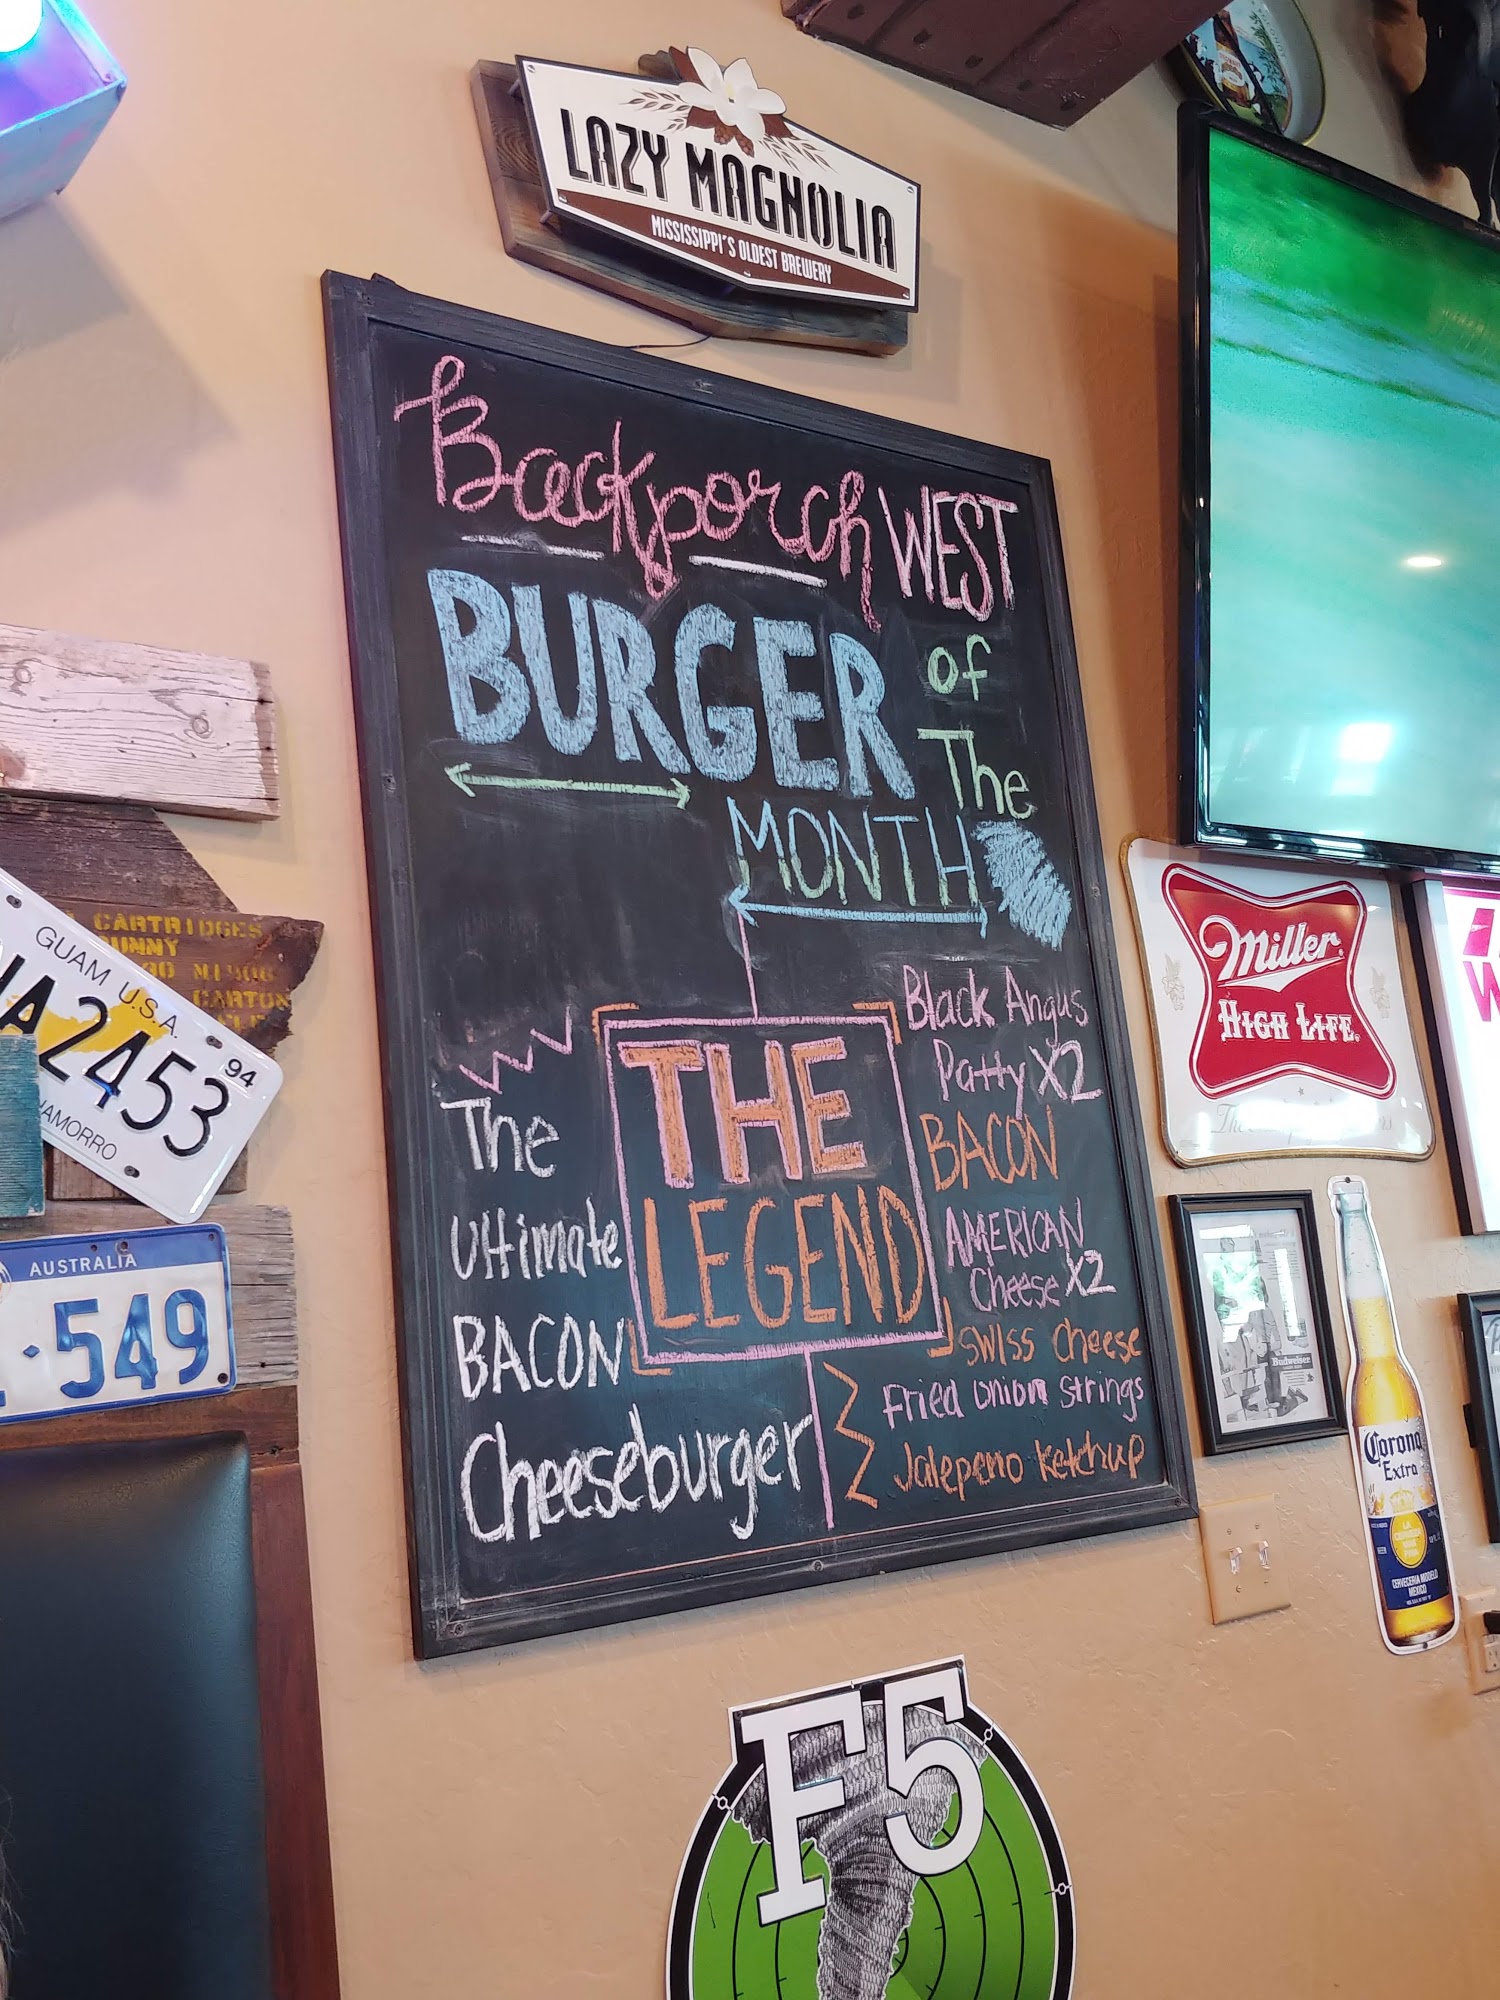 LAZY MAGNOLIA
MISSISSIPPI'S OLDEST BREWERY
Backporch WEST
BURGER of
The
MONTH
THE
LEGEND
The
Ultimate
BACON
Cheeseburger
Black Angus
Patty X2
BACON
AMERICAN
Cheese X2
Swiss Cheese
Fried Onion Strings
Jalepeno Ketchup
CARTRIDGES
CARTON
GUAM U.S.A.
2453
94
AUSTRALIA
549
Miller
HIGH LIFE
W
Budweiser
Corona
Extra
LA
CERVECERIA MODELO
MEXICO
F5